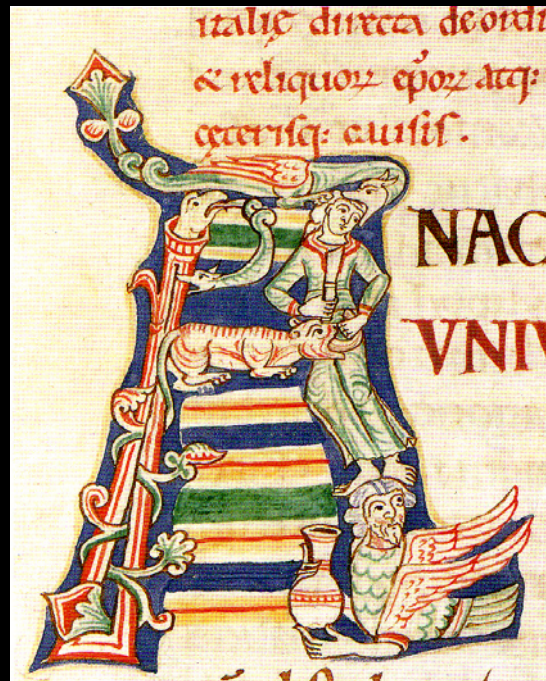 italię directa de ordi
& reliquoꝝ ep̄oꝝ atq:
cęterisq: causis.
A NAC
VNIV